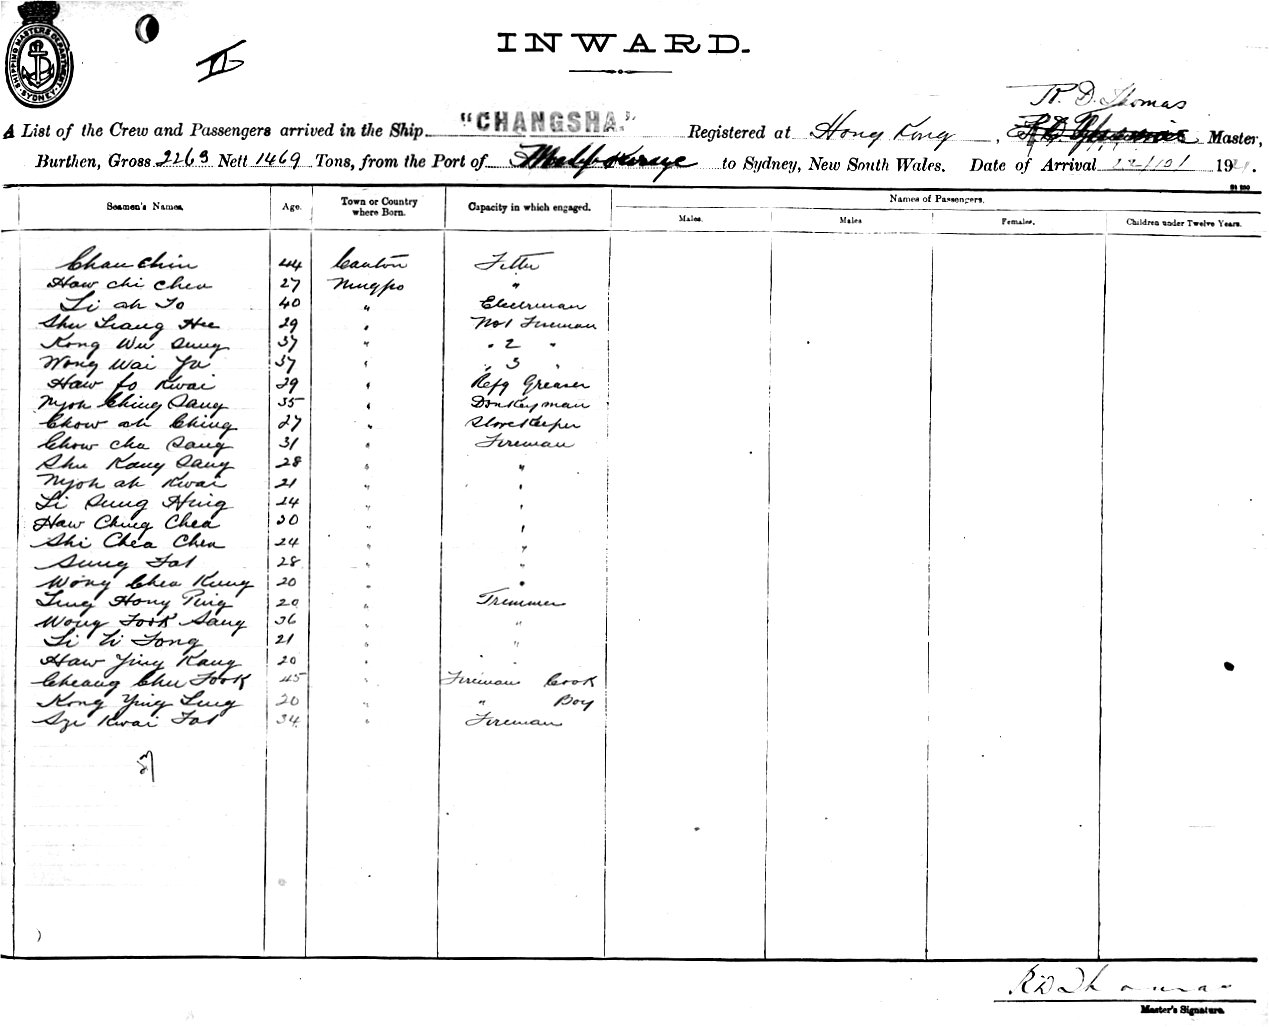 SHIPPING MASTERS DEPARTMENT SYDNEY
II
INWARD.
R. D. Thomas
A List of the Crew and Passengers arrived in the Ship "CHANGSHA." Registered at Hong Kong, Master,
Burthen, Gross 2263 Nett 1469 Tons, from the Port of to Sydney, New South Wales. Date of Arrival 22/101 192
Seamen's Names. Age. Town or Country where Born. Capacity in which engaged. Names of Passengers.
Males. Males Females. Children under Twelve Years.
Chau Chin 44 Canton Fitter
Haw Chi Chea 27 Ningpo "
Li ah To 40 " Electrman
Shu Liang Hee 29 " No 1 Fireman
Kong Wu Sung 37 " " 2 "
Wong Wai Yu 37 " " 3 "
Haw Fo Kwai 29 " Refg Greaser
Njoh Ching Sang 35 " Donkeyman
Chow ah Ching 27 " Storekeeper
Chow cha Sang 31 " Fireman
Shu Kang Sang 28 " "
Njoh ah Kwai 21 " "
Li Sung Hing 24 " "
Haw Ching Chea 30 " "
Shi Chea Chea 24 " "
Sung Fat 28 " "
Wong Chea Kung 20 " "
Ling Hong Ping 20 " Trimmer
Wong Fook Sang 36 " "
Li Li Fong 21 " "
Haw Ying Kang 20 " " "
Cheang Chu Fook 45 " Fireman Cook
Kong Ying Ling 20 " " Boy
Sze Kwai Fat 34 " Fireman
R D Thomas
Master's Signature.